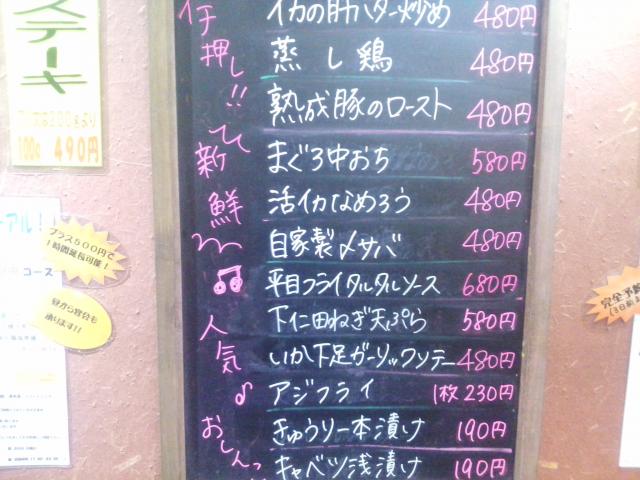 イチ押し!!
イカの肝バター炒め 480円
蒸し鶏 480円
熟成豚のロースト 480円
新鮮
まぐろ中おち 580円
活イカなめろう 480円
自家製〆サバ 480円
平目フライタルタルソース 680円
人気
下仁田ねぎ天ぷら 580円
いか下足ガーリックソテー 480円
アジフライ 1枚230円
おしんこ
きゅうり一本漬け 190円
キャベツ浅漬け 190円
ステーキ
100g 490円
プラス500円で
1時間延長可能!
昼から宴会も
承ります!!
コース